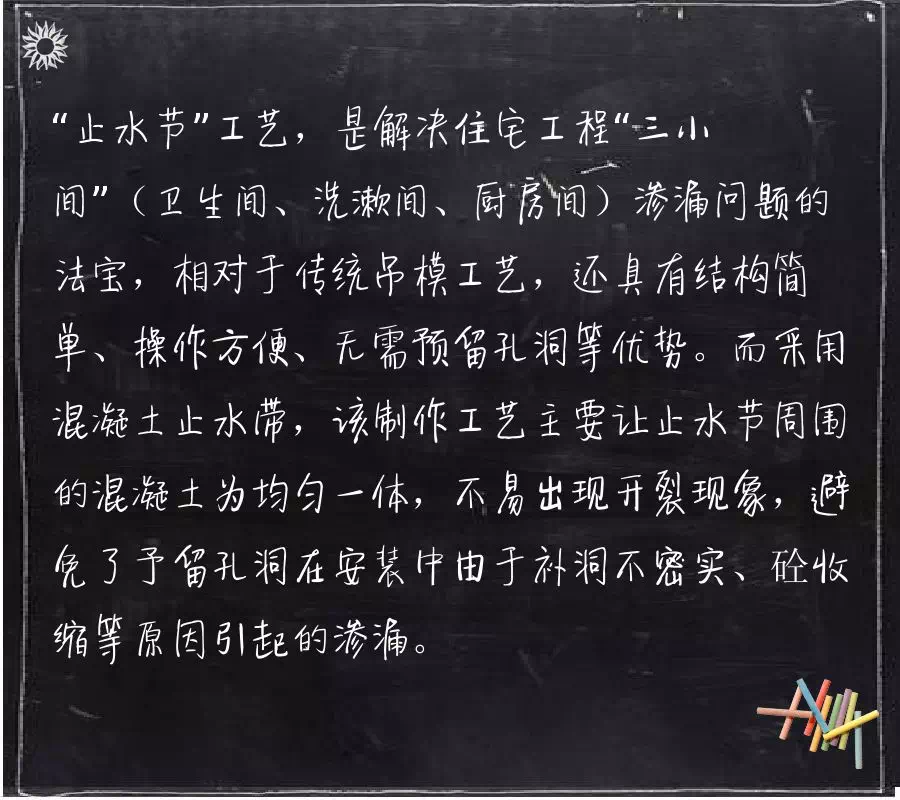 “止水节”工艺，是解决住宅工程“三小
间”（卫生间、洗漱间、厨房间）渗漏问题的
法宝，相对于传统吊模工艺，还具有结构简
单、操作方便、无需预留孔洞等优势。而采用
混凝土止水带，该制作工艺主要让止水节周围
的混凝土为均匀一体，不易出现开裂现象，避
免了予留孔洞在安装中由于补洞不密实、砼收
缩等原因引起的渗漏。